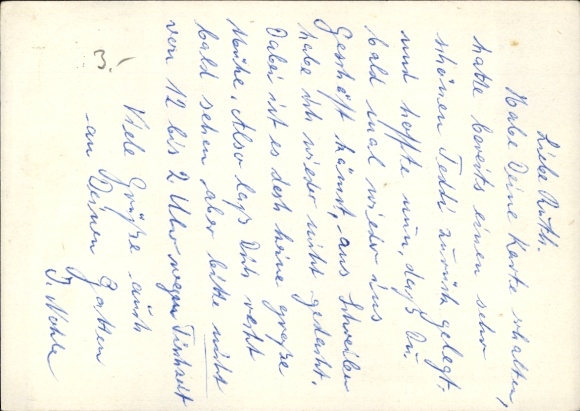 Liebe Ruth.
Habe Deine Karte erhalten,
hatte bereits einen sehr
schönen Teddi zurück gelegt.
und hoffte nun, daß Du
bald mal wieder ins
Geschäft kämst, ans Schreiben
habe ich wieder nicht gedacht.
Dabei ist es doch keine große
Mühe. Also laß Dich recht
bald sehen aber bitte nicht
von 12 bis 2 Uhr wegen Tischzeit
Viele Grüße auch
an Deinen Gatten
3.